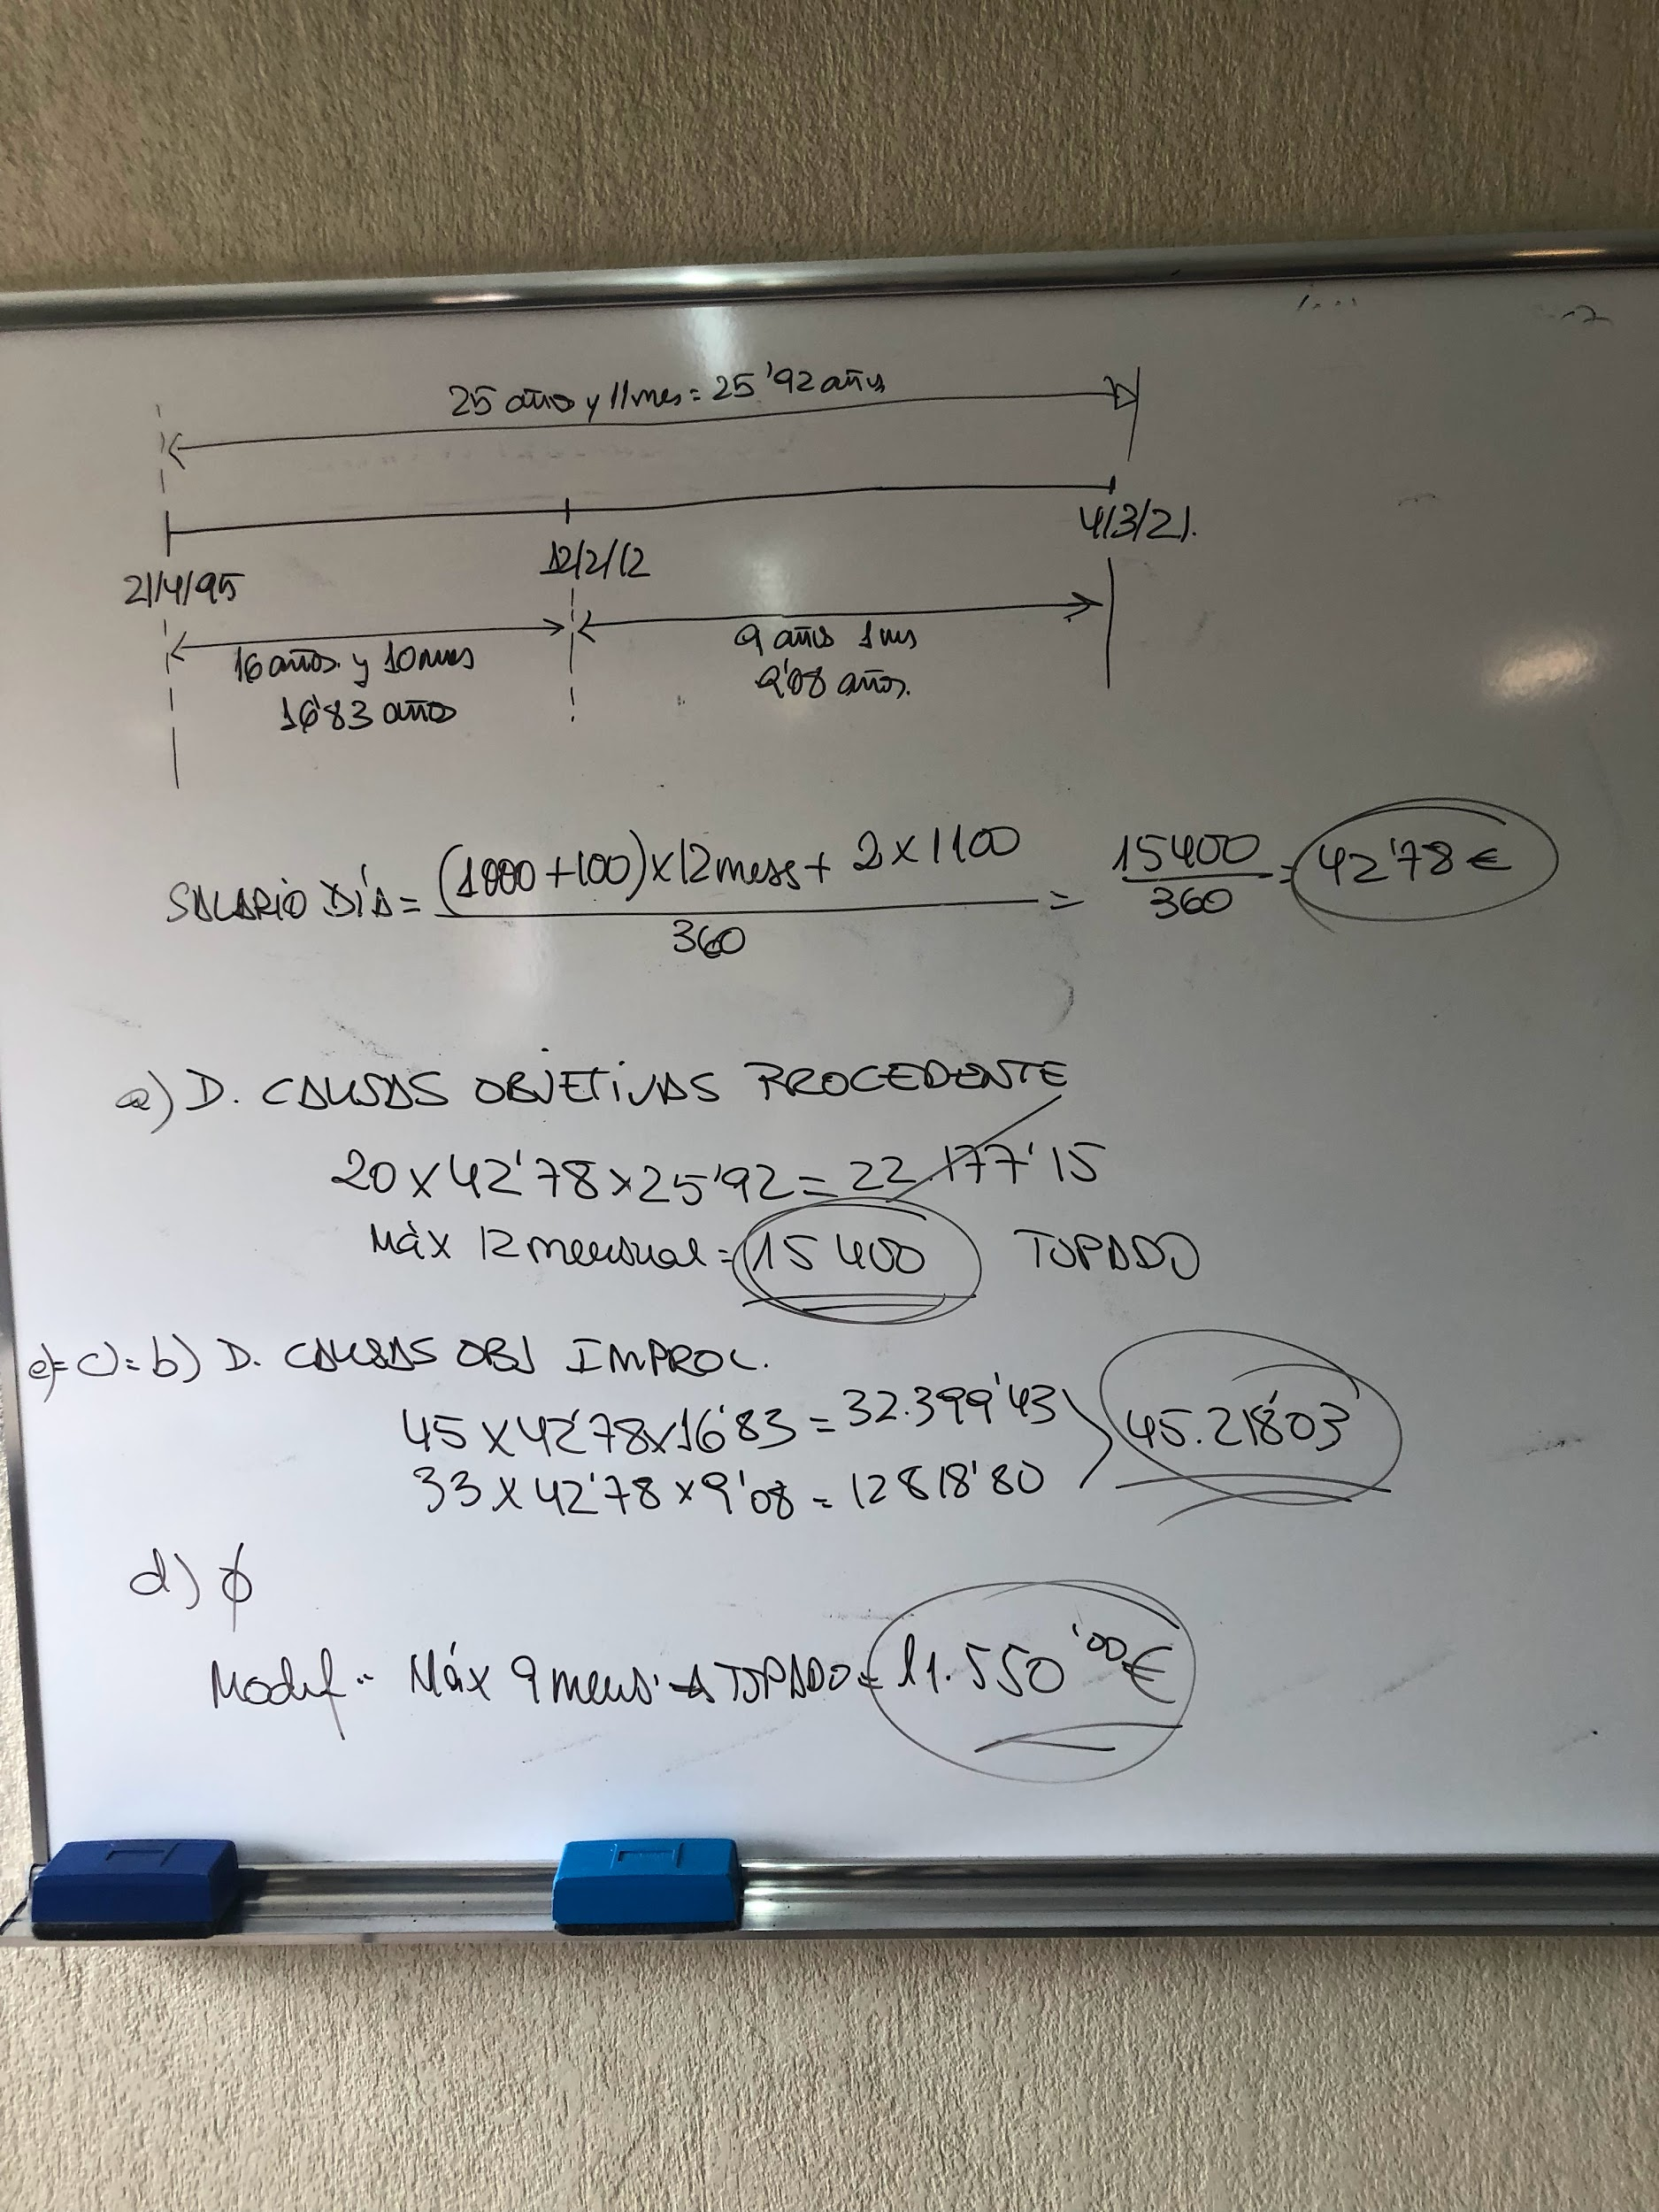 25 años y 11 mes = 25'92 años
21/4/95
12/2/12
4/3/21.
16 años y 10 mes
16'83 años
9 años 1 mes
9'08 años.
SALARIO DÍA = (1000+100)x12 mess + 2x1100 / 360 = 15400 / 360 = 42'78 €
a) D. CAUSAS OBJETIVAS PROCEDENTE
20 x 42'78 x 25'92 = 22.177'15
Máx 12 mensual = 15400 TOPADO
e)= c)= b) D. CAUSAS OBJ IMPROC.
45 x 42'78 x 16'83 = 32.399'43
33 x 42'78 x 9'08 = 12818'80
45.218'03
d) ϕ
Modif. Máx 9 mens. → TOPADO = 11.550'00 €